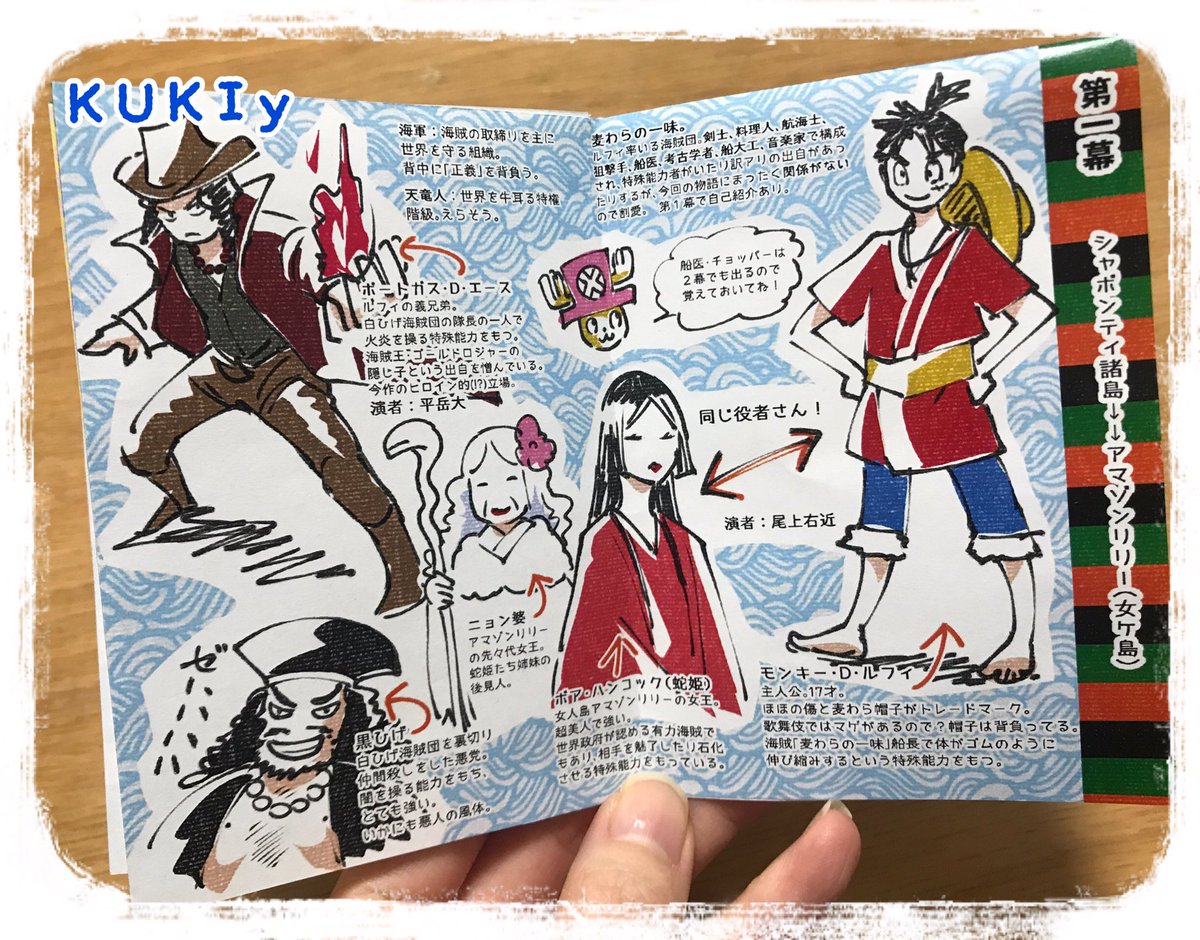 KUKIy
第一幕
シャボンディ諸島→アマゾンリリー(女ケ島)
麦わらの一味。
ルフィ率いる海賊団。剣士、料理人、航海士、
狙撃手、船医、考古学者、船大工、音楽家で構成
され、特殊能力者がいたり訳アリの出自があっ
たりするが、今回の物語にまったく関係がない
ので割愛。 第1幕で自己紹介あり。
船医・チョッパーは
2幕でも出るので
覚えておいてね!
モンキー・D・ルフィ
主人公。17才。
ほほの傷と麦わら帽子がトレードマーク。
歌舞伎ではマゲがあるので?帽子は背負ってる。
海賊「麦わらの一味」船長で体がゴムのように
伸び縮みするという特殊能力をもつ。
同じ役者さん!
演者:尾上右近
ボア・ハンコック(蛇姫)
女人島アマゾンリリーの女王。
超美人で強い。
世界政府が認める有力海賊で
もあり、相手を魅了したり石化
させる特殊能力をもっている。
海軍:海賊の取締りを主に
世界を守る組織。
背中に「正義」を背負う。
天竜人:世界を牛耳る特権
階級。えらそう。
ポートガス・D・エース
ルフィの義兄弟。
白ひげ海賊団の隊長の一人で
火炎を操る特殊能力をもつ。
海賊王・ゴールドロジャーの
隠し子という出自を憎んでいる。
今作のヒロイン的(!?)立場。
演者:平岳大
ニョン婆
アマゾンリリー
の先々代女王。
蛇姫たち姉妹の
後見人。
ゼハハハ
黒ひげ
白ひげ海賊団を裏切り
仲間殺しをした悪党。
闇を操る能力をもち、
とても強い。
いかにも悪人の風体。